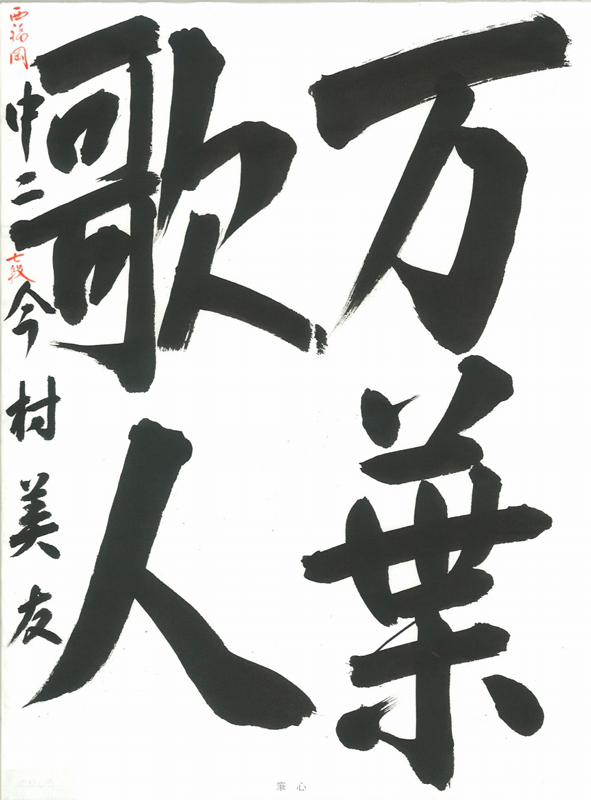 万葉
歌人
西福岡
中二 七段 今村美友
筆心